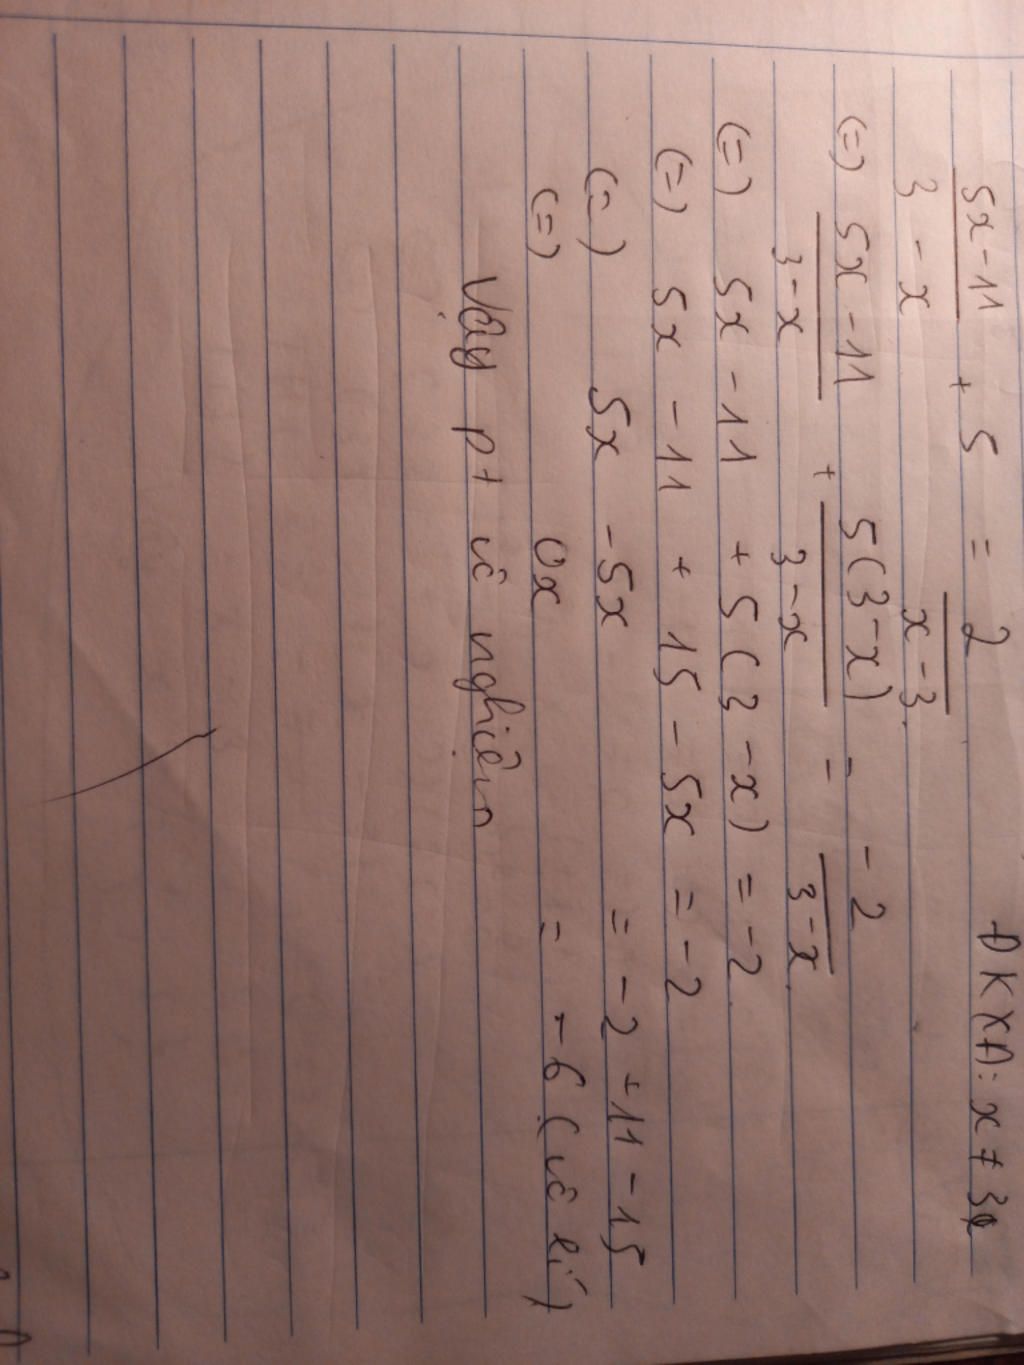 5x-11 + 5 = 2 ĐKXĐ: x ≠ 3
3-x x-3
(=) 5x-11 + 5(3-x) = -2
3-x 3-x 3-x
(=) 5x-11 + 5(3-x) = -2
(=) 5x-11 + 15-5x = -2
(=) 5x -5x = -2+11-15
(=) 0x = -6 (vô lí)
Vậy pt vô nghiệm